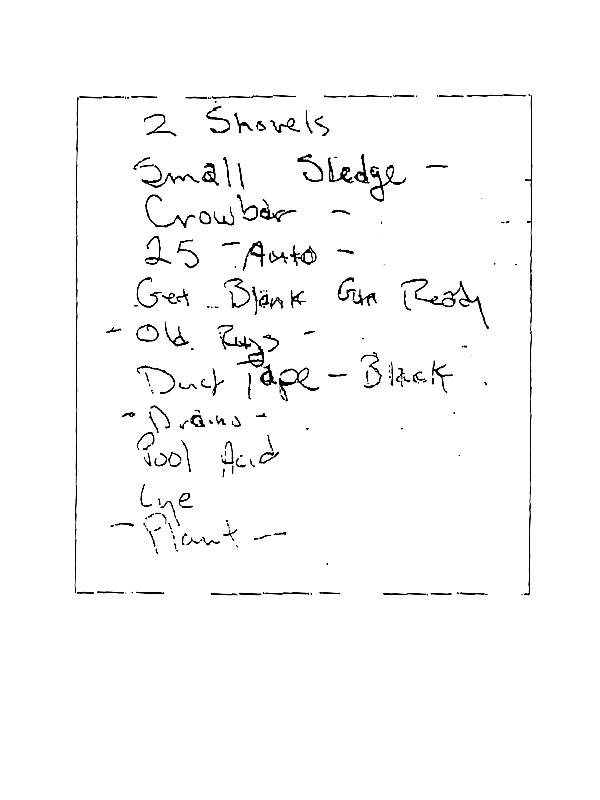 2 Shovels
Small Sledge -
Crowbar -
25 - Auto -
Get Blank Gun Ready
- Old Rugs -
Duct Tape - Black
- Draino -
Pool Acid
Lye
- Plant -